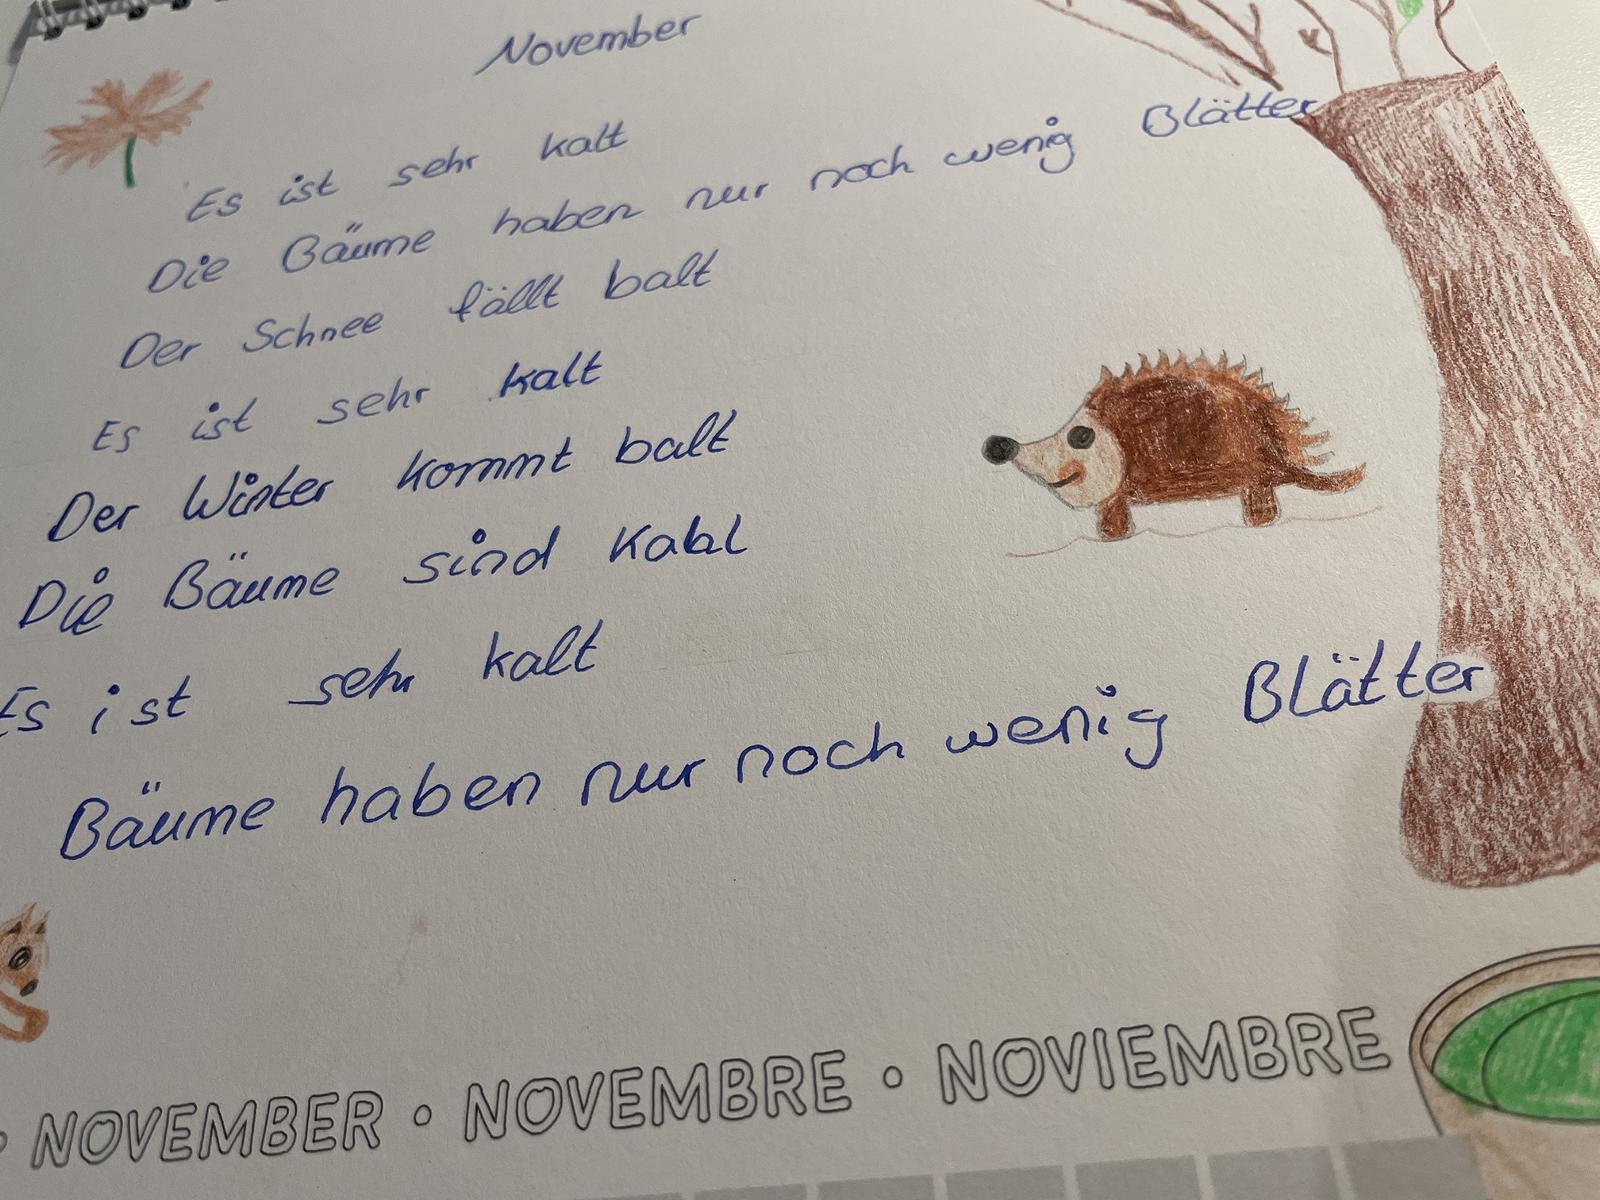 November
Es ist sehr kalt
Die Bäume haben nur noch wenig Blätter
Der Schnee fällt balt
Es ist sehr kalt
Der Winter kommt balt
Die Bäume sind Kahl
Es ist sehr kalt
Bäume haben nur noch wenig Blätter
• NOVEMBER • NOVEMBRE • NOVIEMBRE